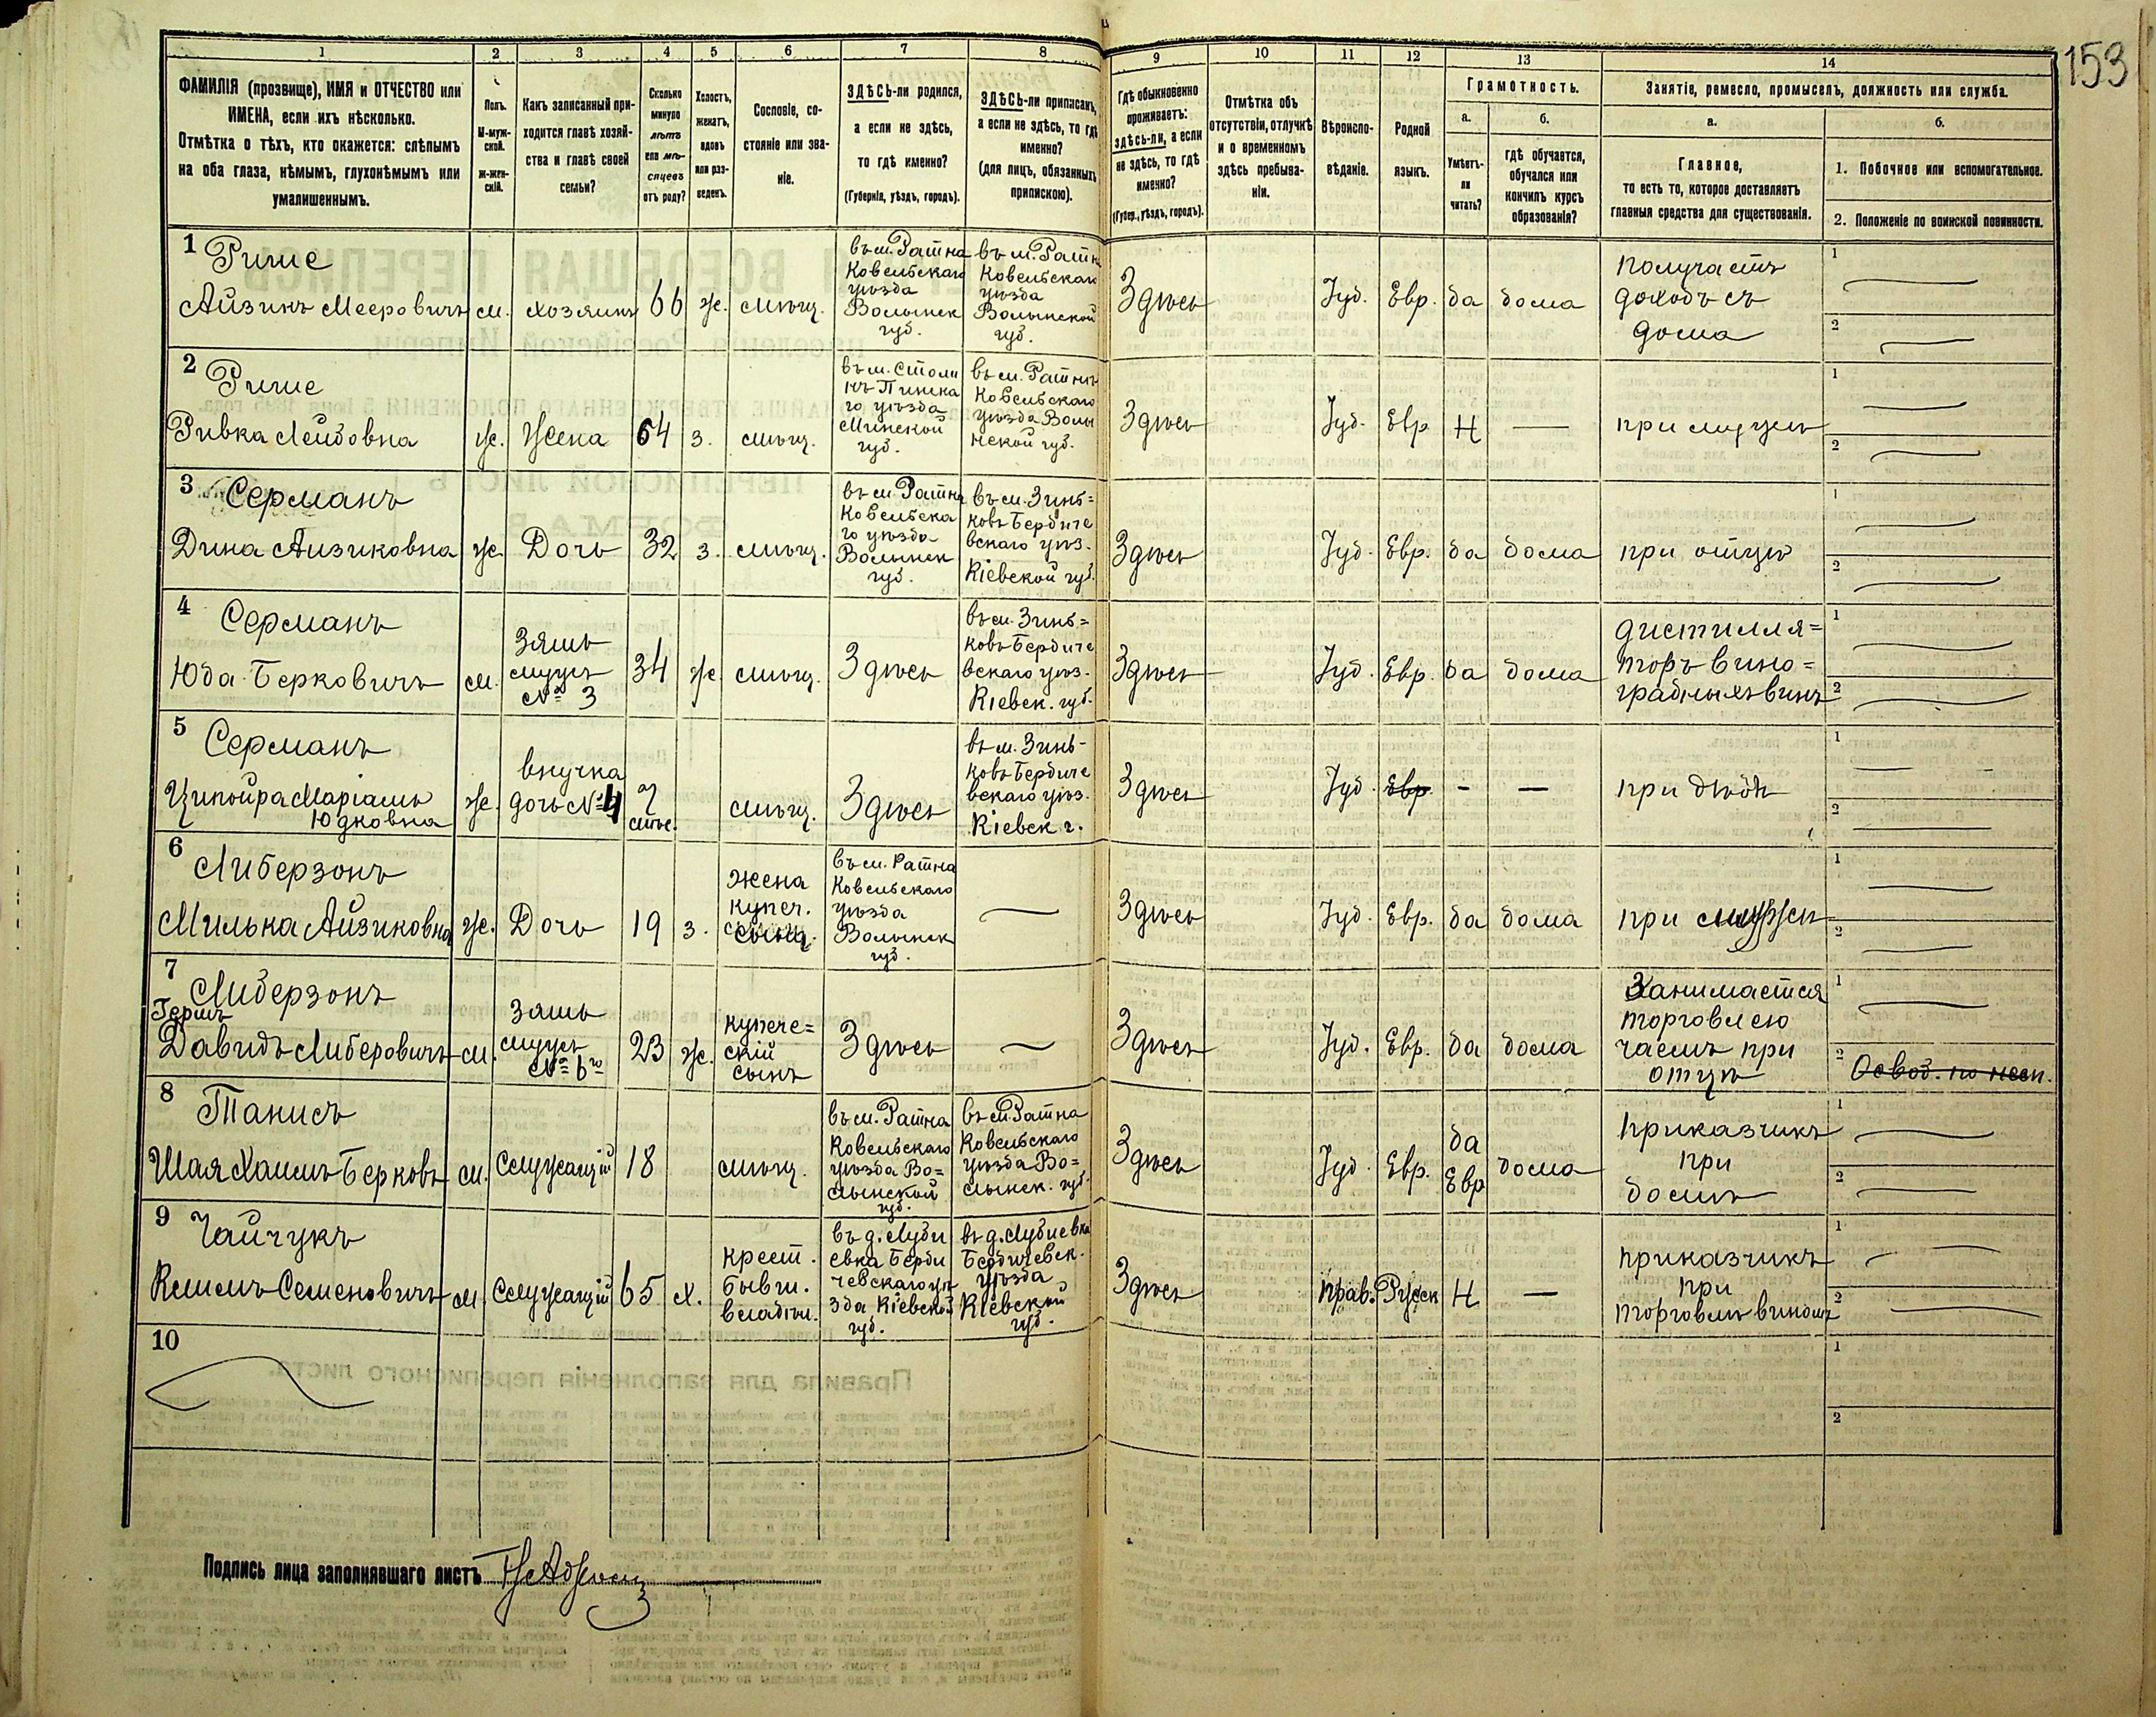 153
1
2
3
4
5
6
7
8
9
10
11
12
13
14
ФАМИЛІЯ (прозвище), ИМЯ и ОТЧЕСТВО или
ИМЕНА, если ихъ нѣсколько.
Отмѣтка о тѣхъ, кто окажется: слѣпымъ
на оба глаза, нѣмымъ, глухонѣмымъ или
умалишеннымъ.
Полъ.
М-муж-
ской.
ж-жен-
скій.
Какъ записанный при-
ходится главѣ хозяй-
ства и главѣ своей
семьи?
Сколько
минуло
лѣтъ
или мѣ-
сяцевъ
отъ роду?
Холостъ,
женатъ,
вдовъ
или раз-
веденъ.
Сословіе, со-
стояніе или зва-
ніе.
ЗДѢСЬ-ли родился,
а если не здѣсь,
то гдѣ именно?
(Губернія, уѣздъ, городъ).
ЗДѢСЬ-ли приписанъ,
а если не здѣсь, то гдѣ
именно?
(для лицъ, обязанныхъ
припискою).
Гдѣ обыкновенно
проживаетъ:
здѣсь-ли, а если
не здѣсь, то гдѣ
именно?
(Губер., уѣздъ, городъ).
Отмѣтка объ
отсутствіи, отлучкѣ
и о временномъ
здѣсь пребыва-
ніи.
Вѣроиспо-
вѣданіе.
Родной
языкъ.
Грамотность.
а.
Умѣетъ-
ли
читать?
б.
гдѣ обучается,
обучался или
кончилъ курсъ
образованія?
Занятіе, ремесло, промыселъ, должность или служба.
а.
Главное,
то есть то, которое доставляетъ
главныя средства для существованія.
б.
1. Побочное или вспомогательное.
2. Положеніе по воинской повинности.
1
Айзикъ Мееровичъ
м.
хозяинъ
66
ж.
мѣщ.
въ м. Ратна
Ковельскаго
уѣзда
Волынск
губ.
въ м. Ратна
Ковельскаго
уѣзда
Волынской
губ.
Здѣсь
Іуд.
Евр.
да
дома
получаетъ
доходъ съ
дома
1
2
2
Ривка Лейбовна
ж.
Жена
64
з.
мѣщ.
въ м. Столи
нѣ Пинска
го уѣзда
Минской
губ.
въ м. Ратнѣ
Ковельскаго
уѣзда Волы
нской губ.
Здѣсь
Іуд.
Евр
Н
—
при мужѣ
1
2
3
Серманъ
Дина Айзиковна
ж.
Дочь
32
з.
мѣщ.
въ м. Ратна
Ковельска
го уѣзда
Волынск
губ.
въ м. Зинь=
ковѣ Бердиче
вскаго уѣз.
Кіевской губ.
Здѣсь
Іуд.
Евр.
да
дома
при отцѣ
1
2
4
Серманъ
Юда Берковичъ
м.
Зять
мужъ
№ 3
34
ж
мѣщ.
Здѣсь
въ м. Зинь=
ковѣ Бердиче
вскаго уѣз.
Кіевск. губ.
Здѣсь
Іуд.
Евр.
да
дома
дистилля=
торъ вино=
градныхъ винъ
1
2
5
Серманъ
Ципойра Маріамъ
Юдковна
ж.
внучка
дочь № 4
7
мѣс.
мѣщ.
Здѣсь
въ м. Зинь-
ковѣ Бердиче
вскаго уѣз.
Кіевск г.
Здѣсь
Іуд.
Евр
-
—
при дѣдѣ
1
2
6
Либерзонъ
Милька Айзиковна
ж.
Дочь
19
з.
жена
купеч.
сына
въ м. Ратна
Ковельскаго
уѣзда
Волынск
губ.
Здѣсь
Іуд.
Евр.
да
дома
при мужѣ
1
2
7
Либерзонъ
Гершъ
Давидъ Либеровичъ
м.
зять
мужъ
№ 6го
23
ж.
купече=
скій
сынъ
Здѣсь
Здѣсь
Іуд.
Евр.
да
дома
Занимается
торговлею
чаемъ при
отцѣ
1
2
8
Танисъ
Шая Хаимъ Берковъ
м.
Служащій
18
мѣщ.
въ м. Ратна
Ковельскаго
уѣзда Во=
лынской
губ.
въ м. Ратна
Ковельскаго
уѣзда Во=
лынск. губ.
Здѣсь
Іуд.
Евр.
да
Евр
дома
приказчикъ
при
домѣ
1
2
9
Чайчукъ
Климъ Семеновичъ
м
Служащій
65
х.
крест.
бывш.
владѣл.
въ д. Луби
евка Берди
чевскаго уѣ
зда Кіевской
губ.
въ д. Лубиевка
Бердичевск.
уѣзда
Кіевской
губ.
Здѣсь
Прав.
Русск
Н
—
приказчикъ
при
торговлѣ виномъ
1
2
10
1
2
Подпись лица заполнявшаго листъ